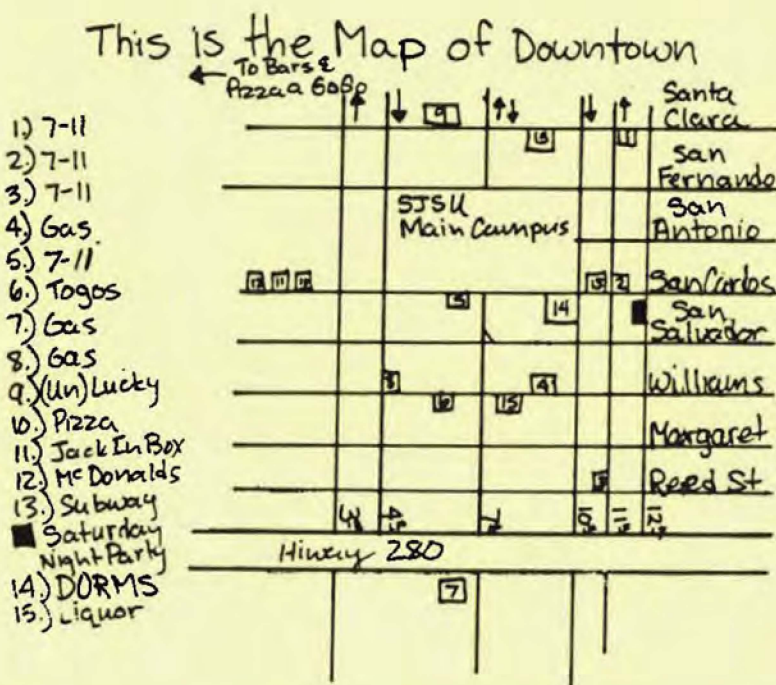 This is the Map of Downtown
← To Bars &
Pizza a GoGo
1.) 7-11
2.) 7-11
3.) 7-11
4.) Gas
5.) 7-11
6.) Togos
7.) Gas
8.) Gas
9.) (Un)Lucky
10.) Pizza
11.) Jack In Box
12.) McDonalds
13.) Subway
Saturday
Night Party
14.) DORMS
15.) Liquor
9
Santa
Clara
San
Fernando
SJSU
Main Campus
San
Antonio
11
2
San Carlos
5
14
San
Salvador
8
4
Williams
6
15
Margaret
Reed St
3rd
4th
7th
10th
11th
12th
Hiwy 280
7